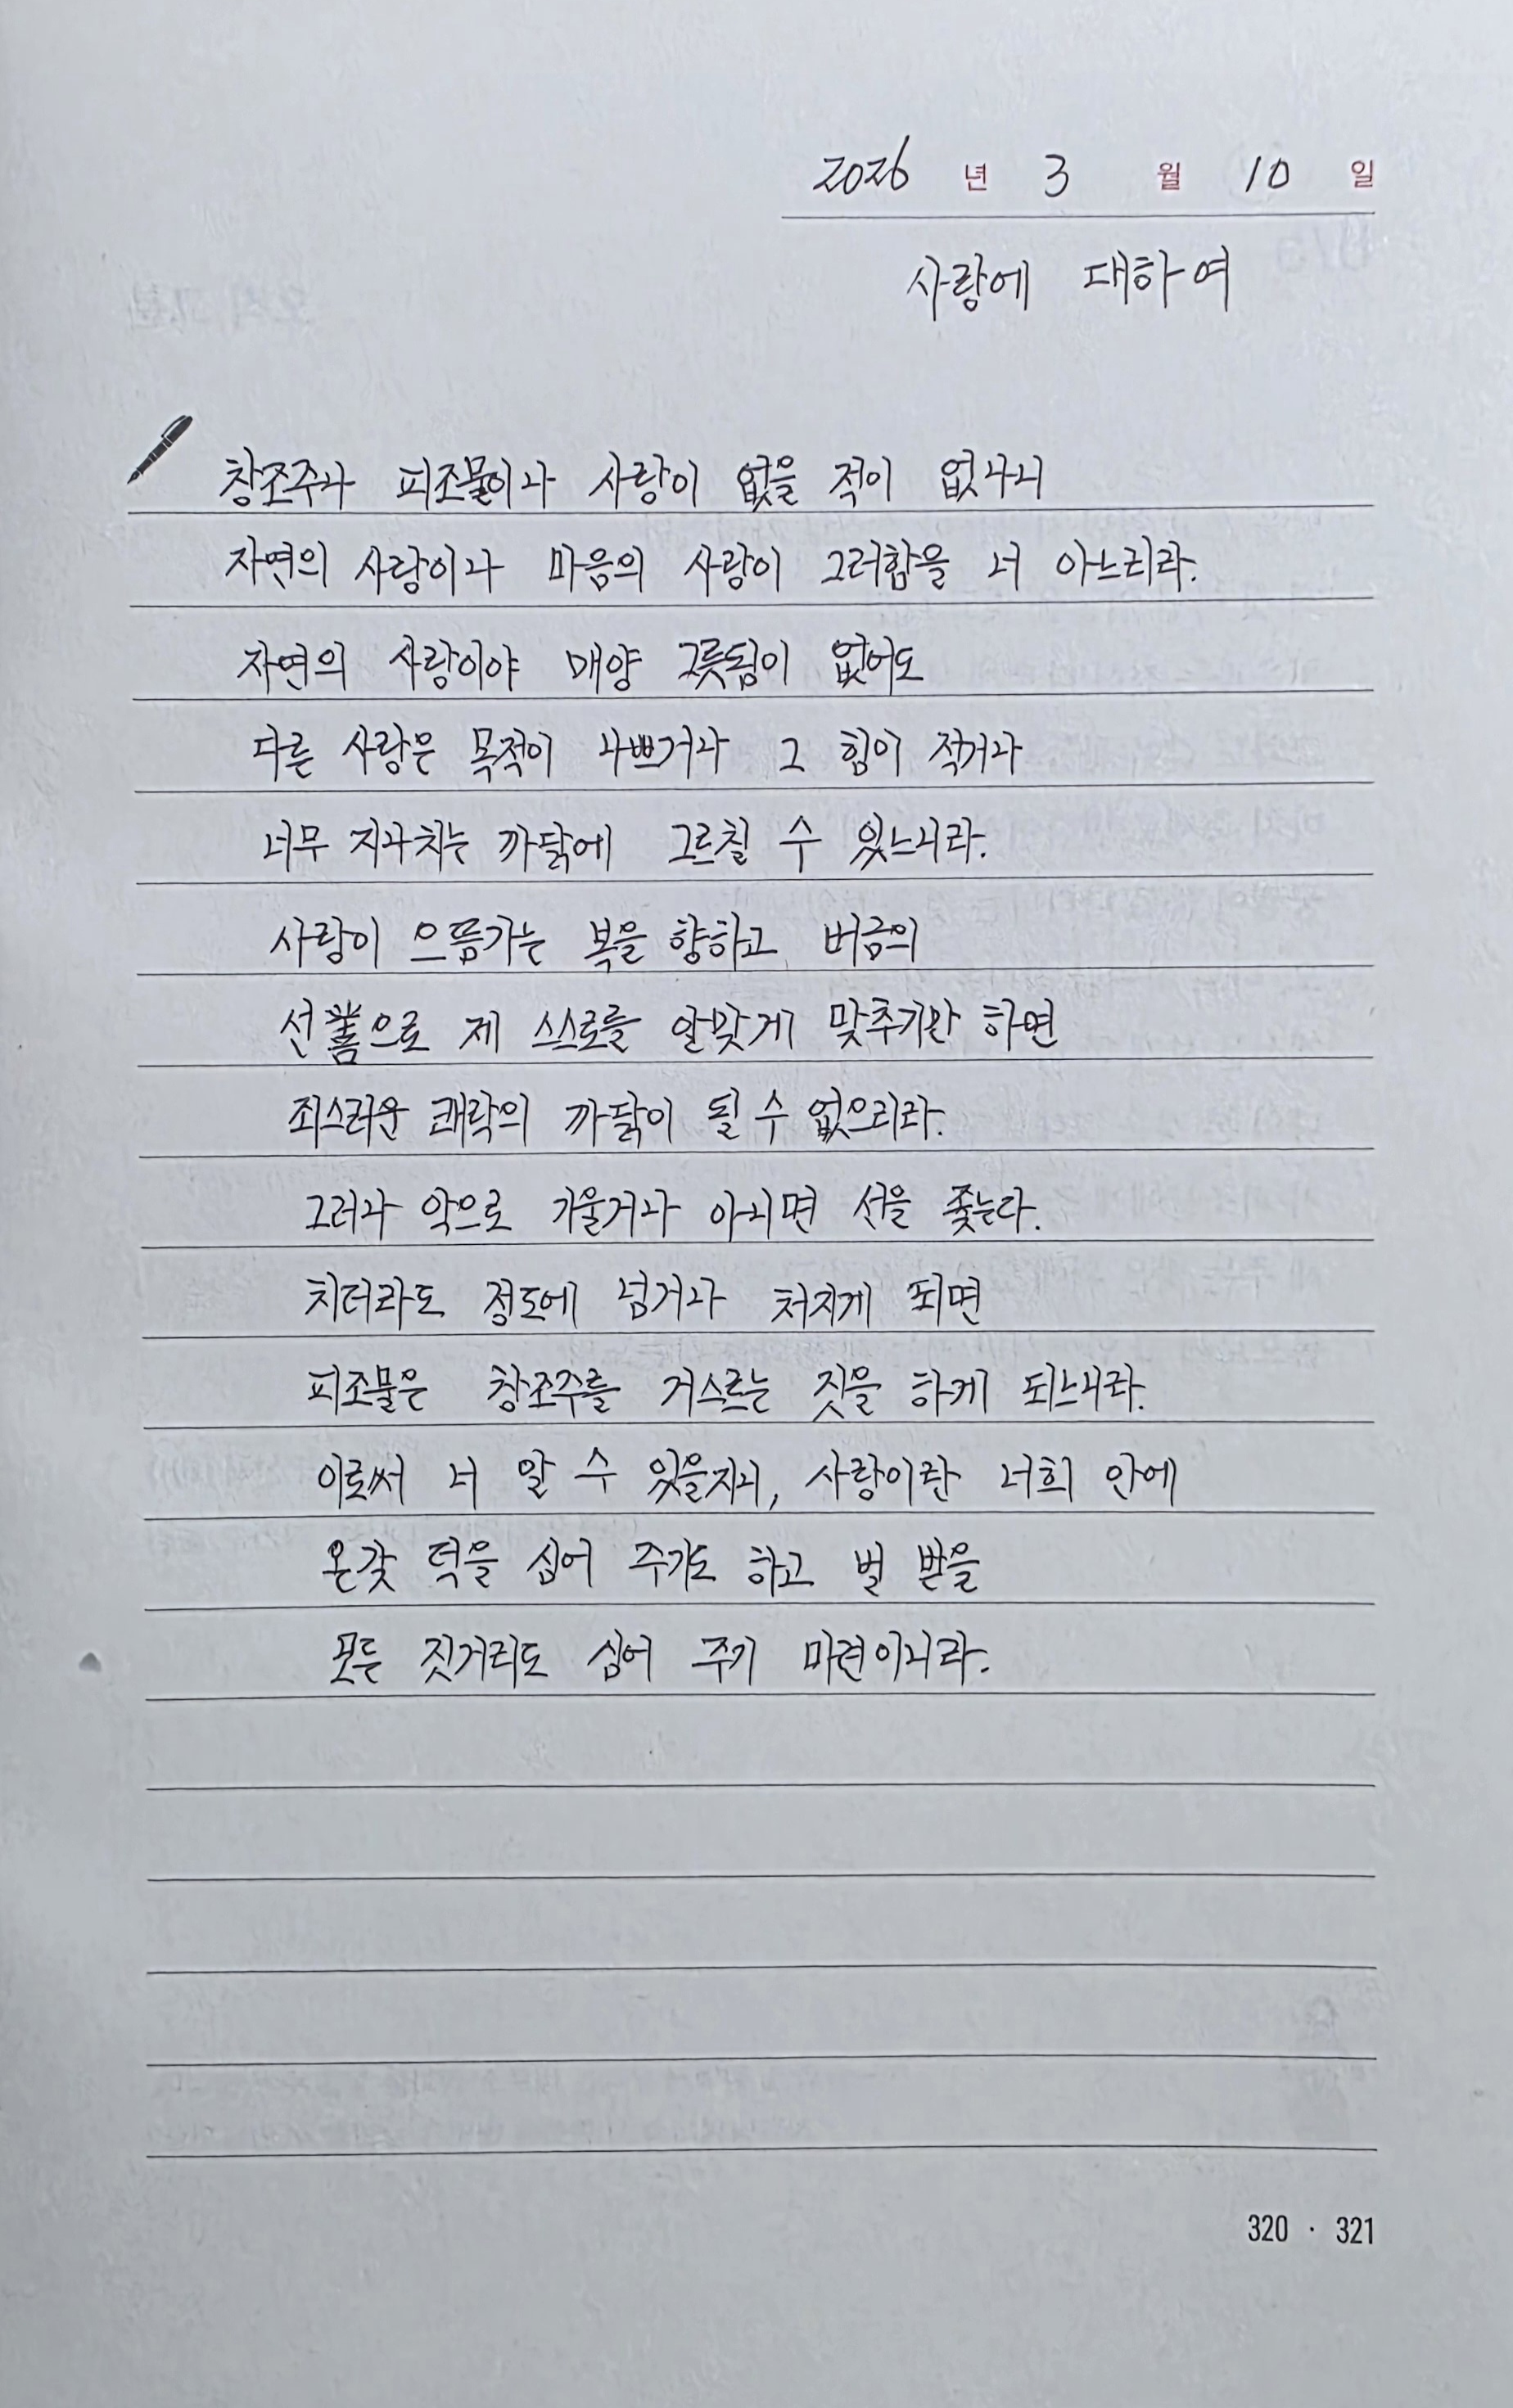 2026 년 3 월 10 일
사랑에 대하여
창조주나 피조물이나 사랑이 없을 적이 없나니
자연의 사랑이나 마음의 사랑이 그러함을 너 아느리라.
자연의 사랑이야 매양 그릇됨이 없어도
다른 사랑은 목적이 나쁘거나 그 힘이 적거나
너무 지나치는 까닭에 그르칠 수 있느니라.
사랑이 으뜸가는 복을 향하고 버금의
선善으로 제 스스로를 알맞게 맞추기만 하면
죄스러운 쾌락의 까닭이 될 수 없으리라.
그러나 악으로 기울거나 아니면 선을 좇는다.
치더라도 정도에 넘거나 처지게 되면
피조물은 창조주를 거스르는 짓을 하게 되느니라.
이로써 너 알 수 있을지니, 사랑이란 너희 안에
온갖 덕을 심어 주기도 하고 벌 받을
모든 짓거리도 심어 주기 마련이니라.
320 · 321